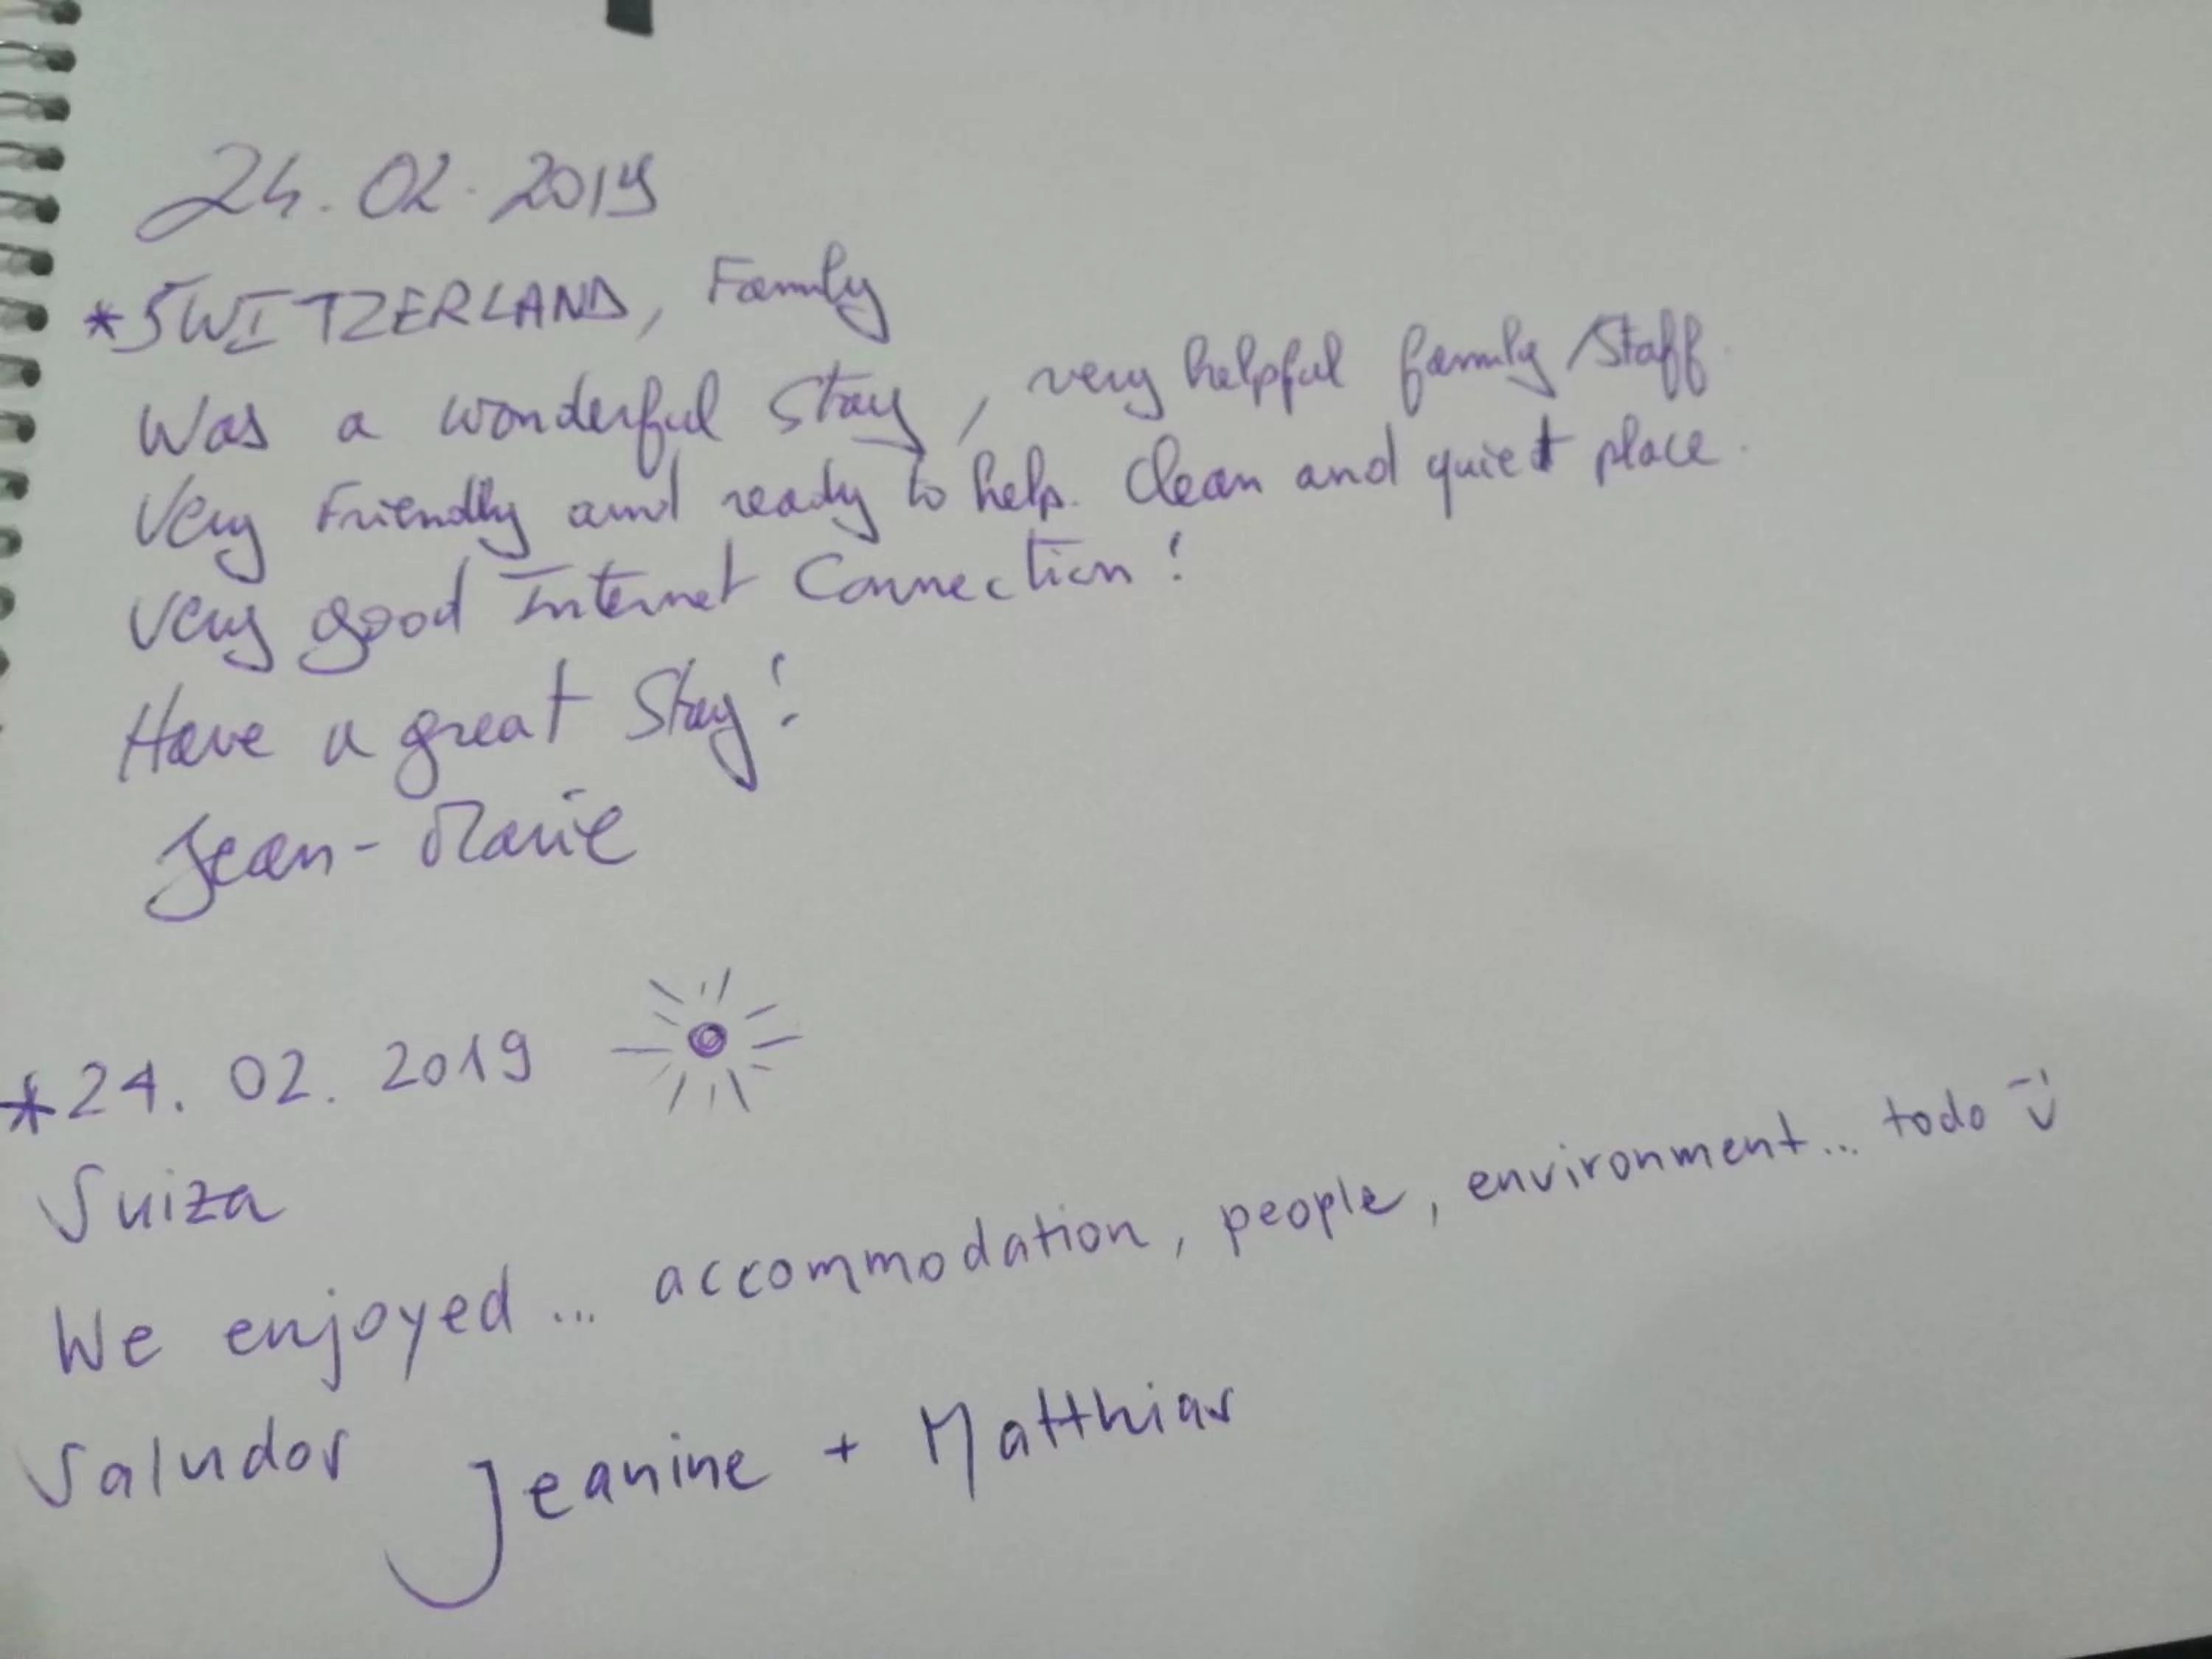 24.02.2019
*SWITZERLAND, Family
Was a wonderful stay, very helpful family/staff.
Very Friendly and ready to help. Clean and quiet place.
Very good Internet Connection!
Have a great Stay!
Jean-Marie
*24. 02. 2019
Suiza
We enjoyed... accommodation, people, environment... todo
Saludos Jeanine + Matthias